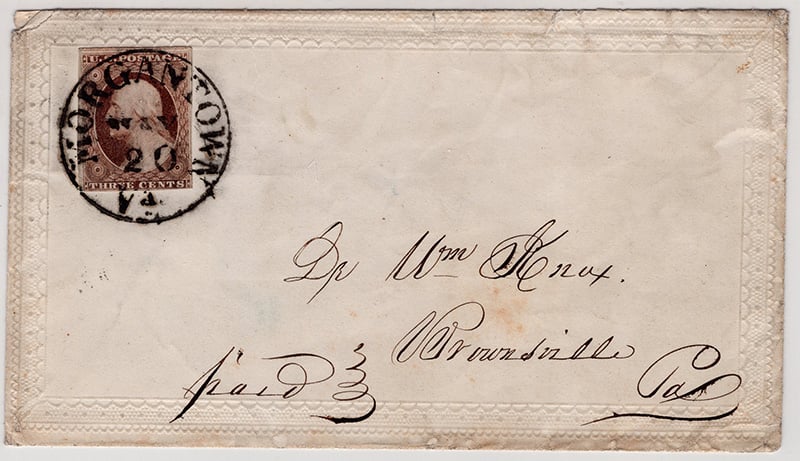 U.S. POSTAGE
MORGANTOWN
20
VA.
THREE CENTS
Dr Wm Knox.
Brownsville
paid
Pa